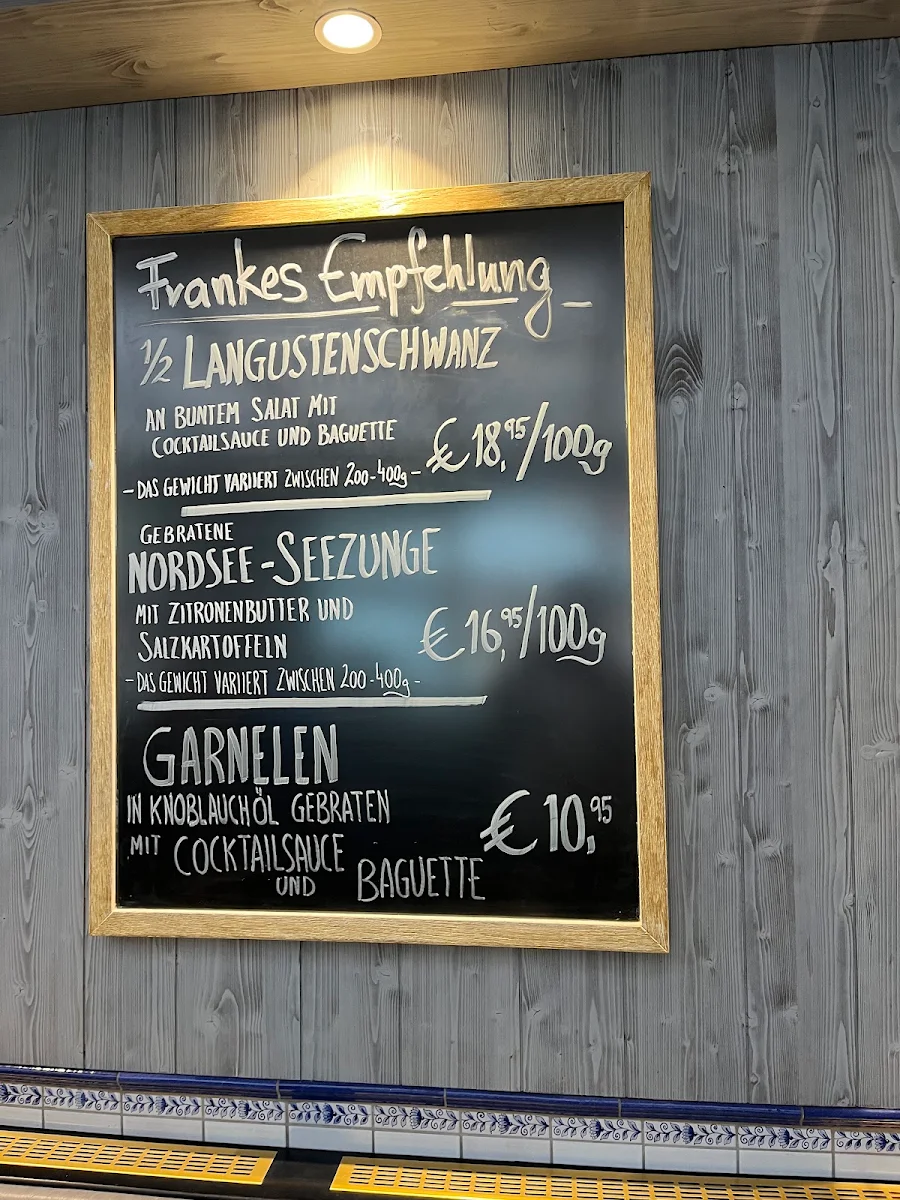 Frankes Empfehlung
1/2 LANGUSTENSCHWANZ
AN BUNTEM SALAT MIT
COCKTAILSAUCE UND BAGUETTE
€ 18,95/100g
- DAS GEWICHT VARIIERT ZWISCHEN 200-400g -
GEBRATENE
NORDSEE-SEEZUNGE
MIT ZITRONENBUTTER UND
SALZKARTOFFELN
€ 16,95/100g
- DAS GEWICHT VARIIERT ZWISCHEN 200-400g -
GARNELEN
IN KNOBLAUCHÖL GEBRATEN
€ 10,95
MIT COCKTAILSAUCE
UND BAGUETTE